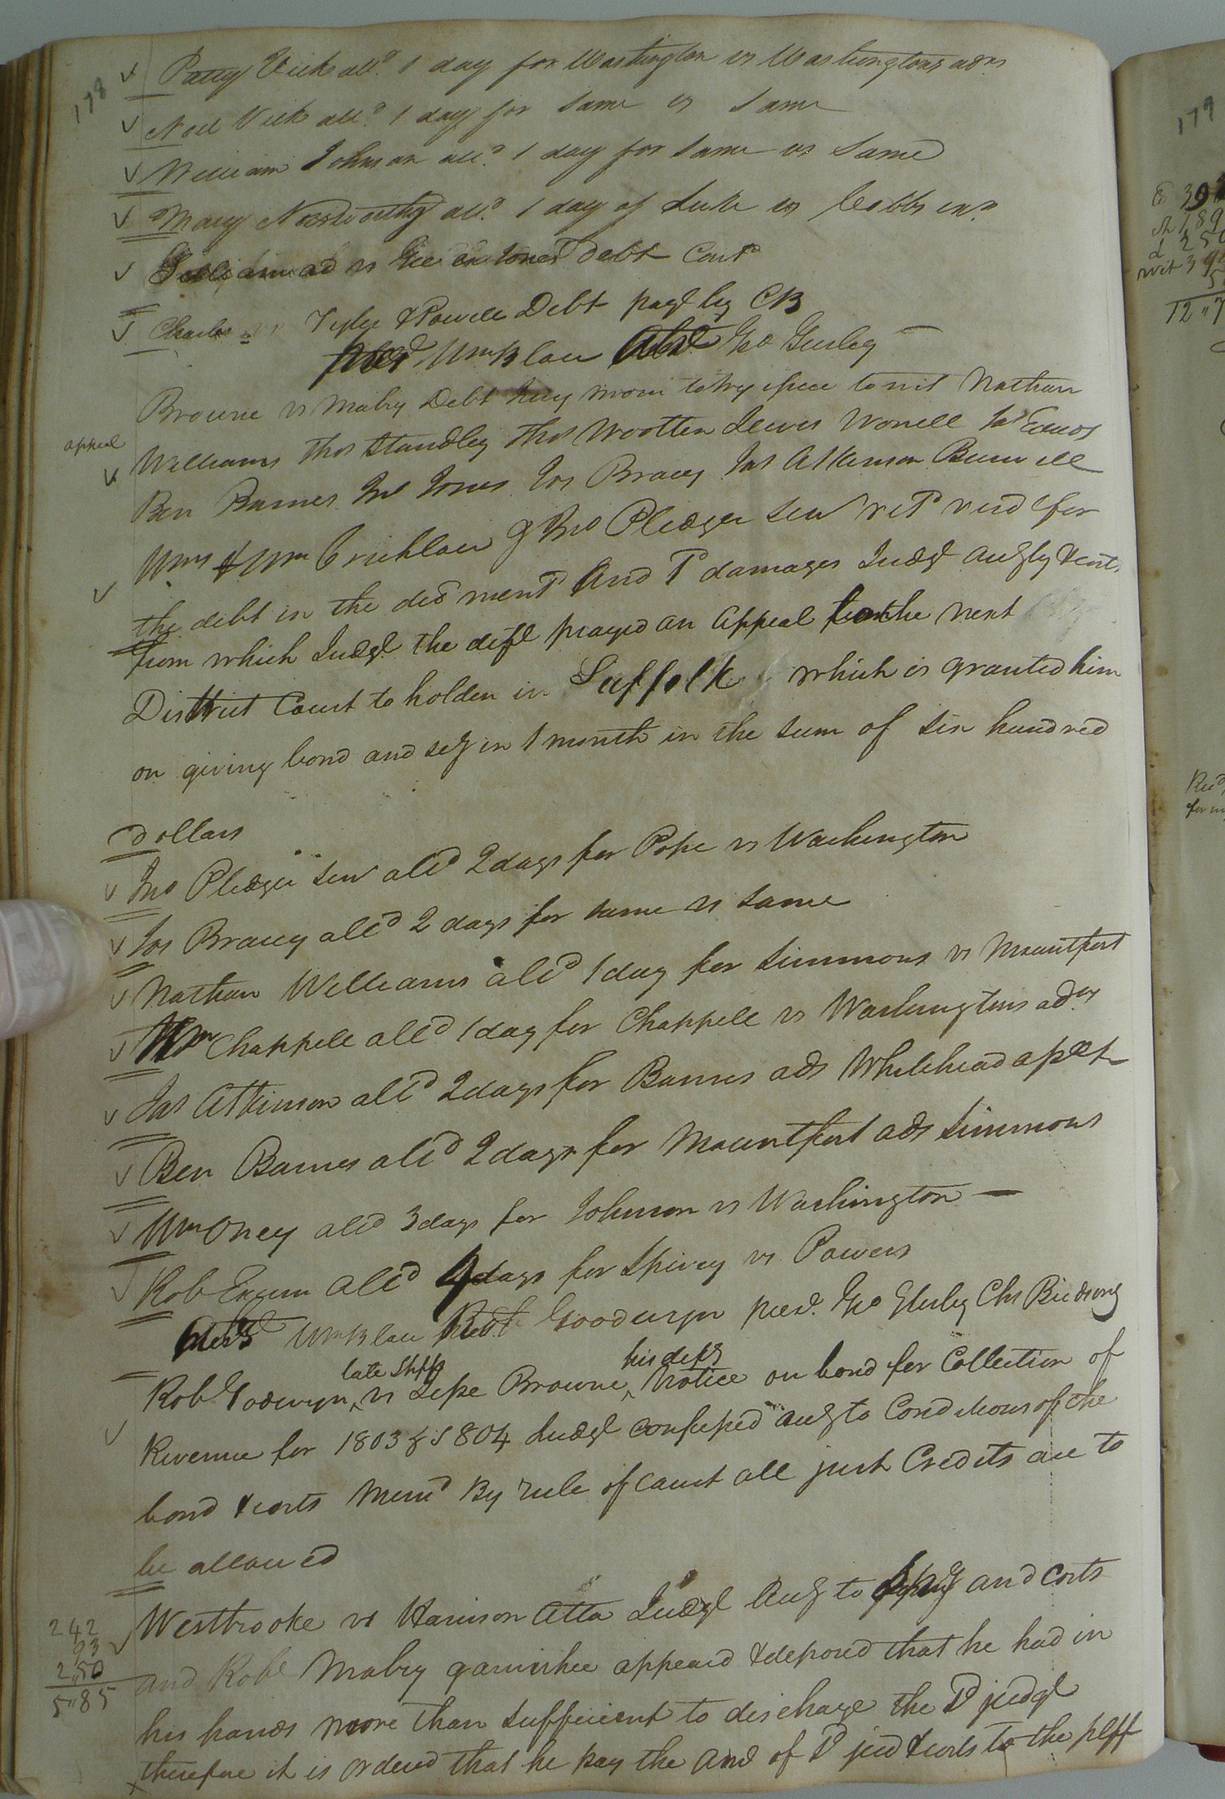 178
Patty Vick alld. 1 day for Washington vs Washingtons adrs
Noel Vick alld. 1 day for same vs same
William Johnson alld. 1 day for same vs same
Mary Norsworthy alld. 1 day of Luke vs Cobbs exr
ad vs Debt Contd
Charles vs Tyler & Powell Debt pagd by CB
Wm Blow Abst Geo Gurley
Browne vs Mabry Debt Jury sworn to try issue to wit Nathan
appeal
Williams Thos Standley Thos Wootten Lewis Worrell Jas
Ben Barnes Jno Jones Jos Bracy Jas Atkinson Burwell
Wms & Wm Crichlow & Jno Pledger Senr retd verd for
the debt in the decn ment And 1d damages Judgt Accgly & costs
from which Judgt the deft prayed an Appeal to the next
District Court to holden in Suffolk which is granted him
on giving bond and secy in 1 month in the sum of six hundred
Dollars
Jno Pledger Senr alld 2 days for Pope vs Washington
Jos Bracey alld 2 days for same vs same
Nathan Williams alld 1 day for Simmons vs Mountfort
Wm Chappell alld 1 day for Chappell vs Washingtons adrs
Jas Atkinson alld 2 days for Barnes ads Whitehead
Ben Barnes alld 2 days for Mountfort ads Simmons
Wm Oney alld 3 days for Johnson vs Washington
Rob Exum alld 4 days for Spivey vs Powers
Wm Blow Robt Goodwyn pres. Geo Gurley Chs Birdsong
late Shff his depy
Robt Goodwyn vs Jesse Browne Notice on bond for Collection of
Revenue for 1803 & 1804 Judgt confessed accg to Conditions of the
bond & costs Memd By rule of Court all just Credits are to
be allowed
Westbrooke vs Harrison Atta Judgt Accg to and costs
242
93
2.50
5"85
and Robt Mabry garnishee appeard & deposed that he had in
his hands more than sufficient to discharge the sd judgt
therefore it is ordered that he pay the amt of sd jud & costs to the plff
179
12"7